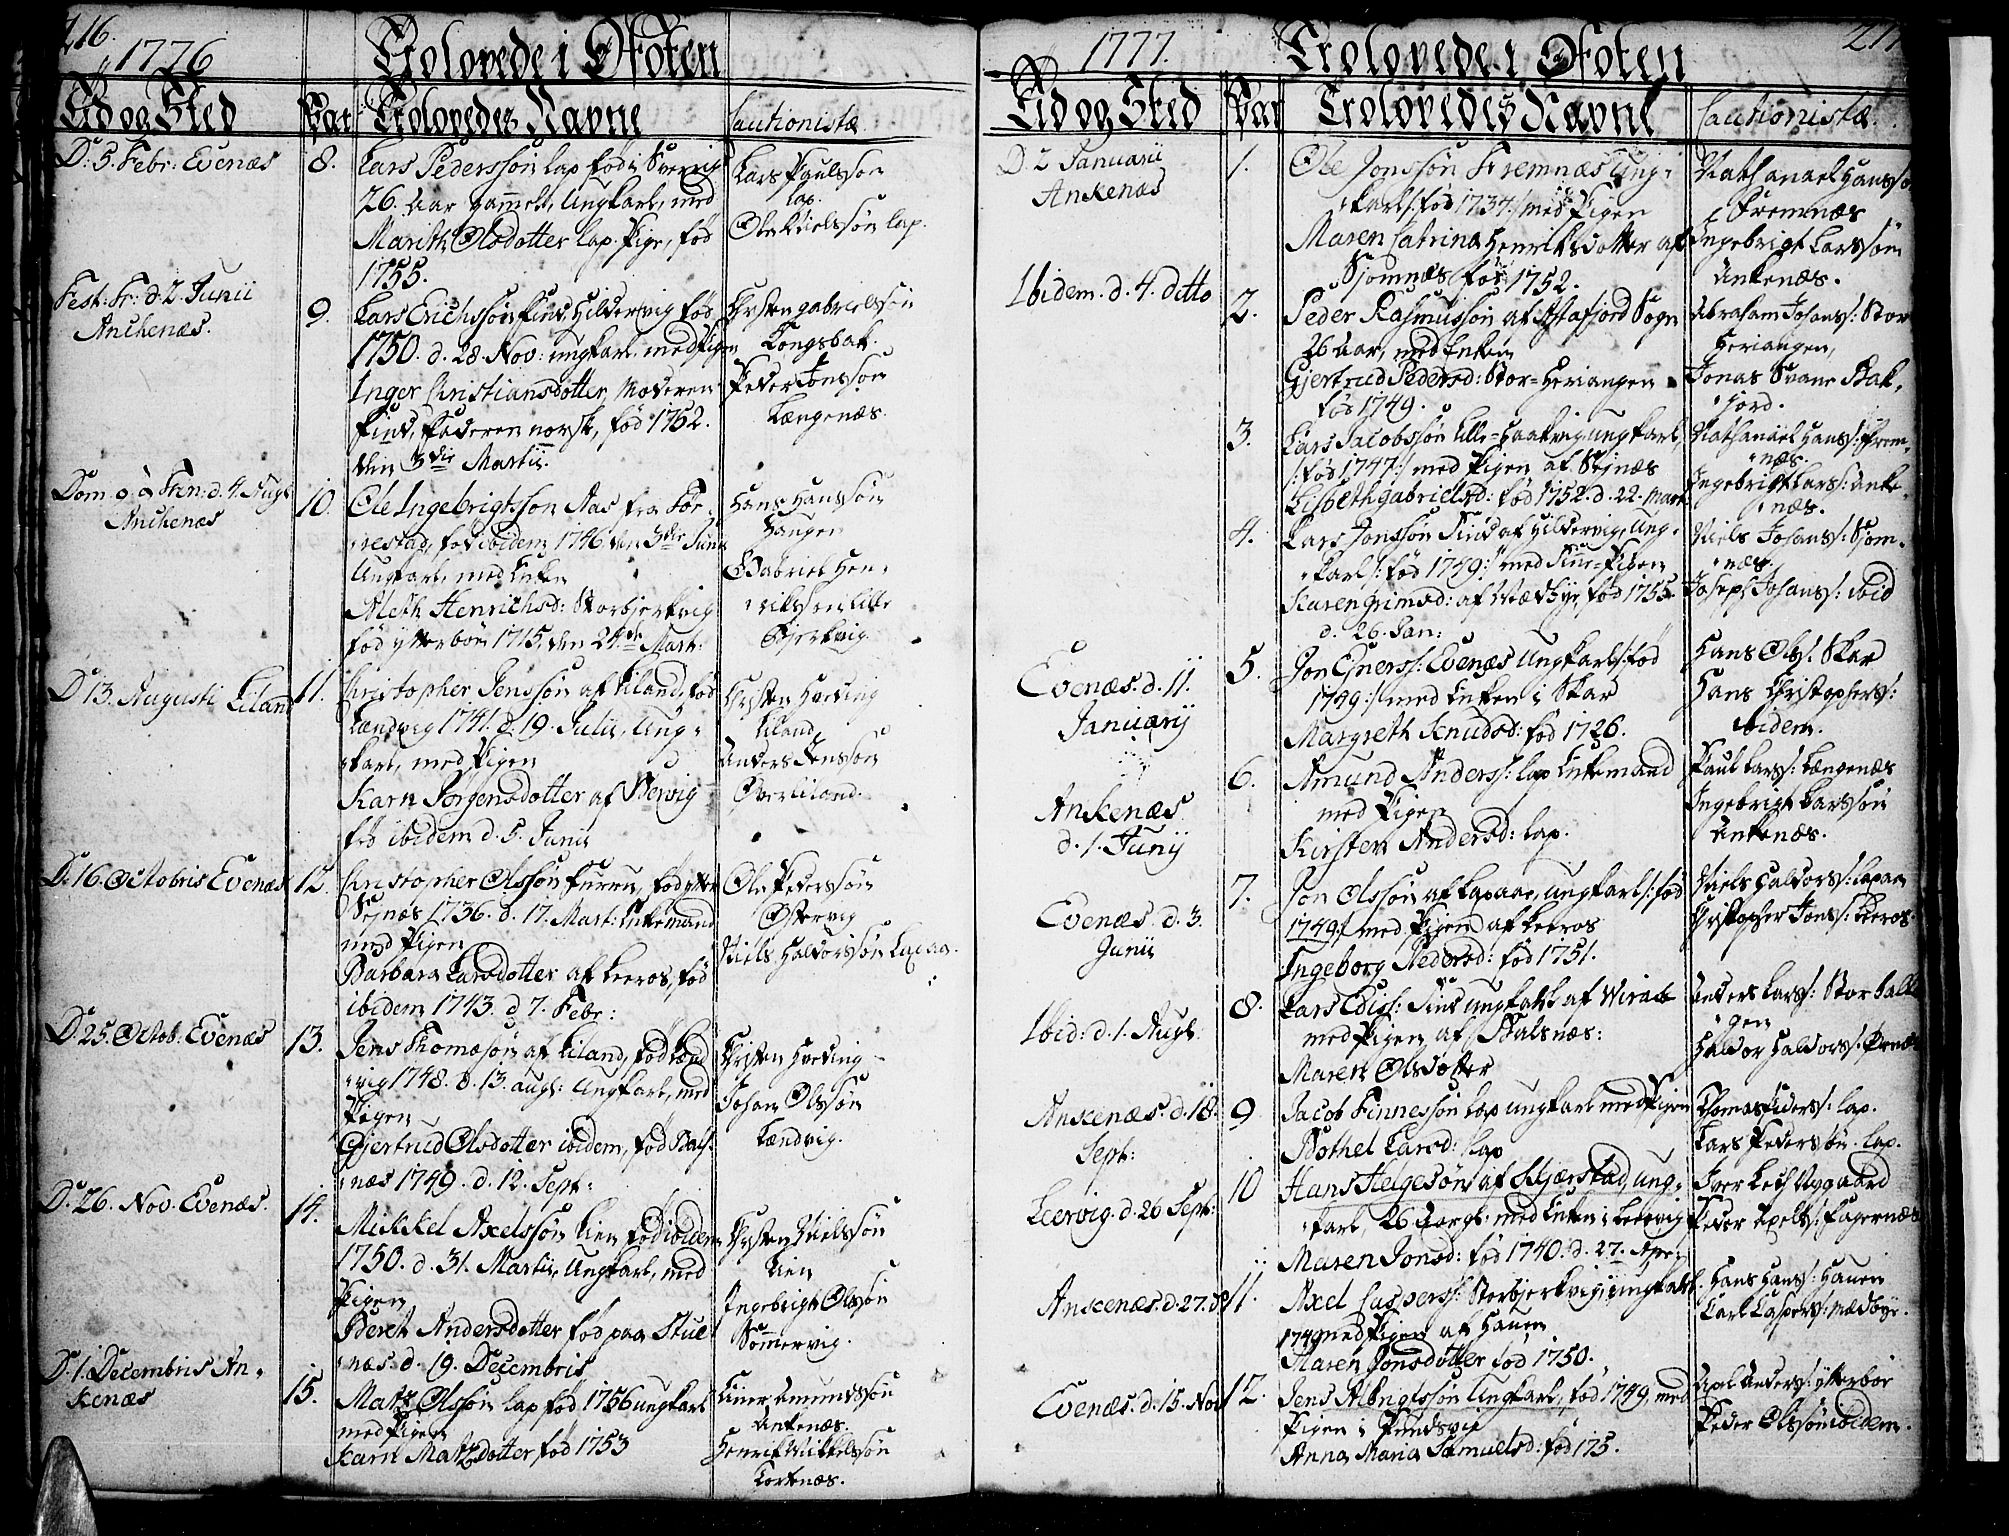 216.
1776
Trolovede i Ofoten
Tid og Sted
Par
Trolovedes Navne
Cautionistæ
D. 5. Febr. Evenæs
8.
Lars Pedersøn lap fød i Sverrig
26. Aar gammel, Ungkarl, med
Marith Olsdotter lap. Pige, fød
1755.
Lars Paulsson
lap.
Ole Nielssøn lap.
Fest: Tr: d. 2. Junii
Anchenæs.
9.
Lars Erichssøn find, Hildervig fød
1750. d. 28. Nov: ungkarl. med Pigen
Inger Christiansdotter, Moderen
find, Faderen norsk, fød 1752.
den 3die Martii.
Christen Gabrielssøn
Kongsbak.
Peder Jonssøn
Længenæs.
Dom. 9. à Trin: d. 4. Augs
Anchenæs
10.
Ole Ingebrigtssøn Aas fra For-
restad, fød ibidem 1746 den 3die Junii
Ungkarl, med Enken
Aleth Henrichsd: Storbierkvig
fød ytterboen 1715. den 24de Mart:
Hans Hanssøn
Haugen
Gabriel Hen-
rikssøn lille
Bjerkvig.
D. 13. Augusti Liland
11.
Christopher Jenssøn af Liland, fød
Lændvig 1741. d. 19. Julii, Ung-
karl, med Pigen
Karn Jørgensdotter af Bervig
fød ibidem d. 5. Junii
Christen Hveding
Liland
Anders Jenssøn
Øvre liland.
D. 16. Octobris Evenæs
12.
Christopher Olssøn furru, fød ytter
Sejnæs 1736. d. 17. Mart: Enkemand
med Pigen
Barbara Larsdotter af Leeros, fød
ibidem 1743. d. 7. Febr:
Ole Pederssøn
Østervig
Niels Haldorssøn Lapaa.
D. 25. Octob. Evenæs
13.
Jens Thomæsøn af Liland, fød Lænd-
vig 1748. d. 13. augs: Ungkarl, med
Pigen
Gjertrud Olsdotter ibidem, fød Bals-
næs 1749. d. 12. Sept:
Christen Hveding
Johan Olssøn
Lændvig.
D. 26. Nov. Evenæs.
14.
Mickkel Axelssøn Lien fød ibidem
1750. d. 31. Martii, Ungkarl, med
Pigen
Bereth Andersdotter fød paa Stue-
næs d. 19. Decembris
Christen Nielssøn
Lien
Ingebrigt Olssøn
Sommervig.
D. 1. Decembris An-
kenæs
15.
Matz Olssøn lap fød 1756 ungkarl
med Pigen
Karn Matzdotter fød 1753
Einer Amundssøn
Ankenæs.
Henrik Mikkelssøn
Tortenæs.
1777.
Trolovede i Ofoten
217
Tid og Sted
Par
Trolovedes Navne
Cautionistæ.
D. 2 Januarii
Ankenæs
1.
Ole Jonssøn Fremnæs ung-
karl /: fød 1734 :/ med Pigen
Maren Catrina Henriksdotter af
Sjomnæs fød 1752.
Nathanael Hanssø
Fremnæs
Ingebrigt Larssøn
Ankenæs.
Ibidem. d. 4. ditto
2.
Peder Rasmussøn af Astafjord Sogn
26 Aar, med Enken
Gjertrud Pedersd: Stor-Heriangen
fød 1749.
Abraham Johans/: Stor
Heriangen,
Jonas Svane Bak-
jord.
3.
Lars Jacobssøn Lille-Haakvig, ungkarl,
/: fød 1747 :/ med Pigen af Sejnæs
Lisbeth Gabrielsd: fød 1752. d. 22. Mart
Nathanael Hans/: Frem-
næs.
Ingebrigt Lars/: Anke-
næs.
4.
Lars Jonssøn Find af Hildervig, Ung-
karl /: fød 1749 :/ med Pigen
Karen Grimsd: af Mædbye, fød 1755
d. 26. Jan:
Niels Johans/: Sjom-
næs.
Joseph Johans/: ibid
Evenæs. d. 11.
Januarij
5.
Jon Ejners/: Evenæs Ungkarl /: fød
1749 :/ med Enken i Skar
Margreth Knudsd: fød 1726.
Hans Ols/: Skar
Hans Christophers/:
ibidem.
Ankenæs
d. 1. Junij
6.
Amund Anders/: lap Enkemand
med Pigen
Kirsten Andersd: lap.
Paul Lars/: Længenæs
Ingebrigt Larssøn
Ankenæs.
Evenæs. d. 3.
Junii
7.
Jon Olssøn af Lapaae, ungkarl /: fød
1749 :/ med Pigen af Leeros
Ingeborg Pedersd: fød 1751.
Niels Haldors/: Lapaa
Christopher Jons/: Leeros.
Ibid: d. 1. Augs
8.
Lars Edis/: Find ungkarl af Wirak
med Pigen af Balsnæs:
Maren Olsdotter
Anders Lars/: Stor Balla-
gen
Haldor Haldors/:
Anskenæs. d. 18.
Sept:
9
Jacob Finnessøn lap ungkarl med Pigen
Bothel Larsd: lap
Thomas Siders/: lap.
Lars Pederssøn. lap.
Leervig. d. 26 Sept:
10
Hans Helgesøn af Skjærstad, ung-
karl, 26 Aar gl: med Enken i Leervig
Maren Jonsd: fød 1740. d. 27. Apr:
Iver Leth Nygaard
Peder Axels/: Fagernæs
Anskenæs. d. 27. D
11.
Axel Caspers/: Storbjerkvig, ungkarl
1749 med Pigen af Hauen
Maren Jonsdotter fød 1750.
Hans Hans/: Hauen
Carl Caspers/: Mædbye.
Evenæs. d. 15. Nov
12.
Jens Albrigtssøn Ungkarl, fød 1749, med
Pigen i Pundsvig
Anna Maria Samuelsd: fød 175.
Axel Anders/: ytterboe
Peder Olssøn ibidem.